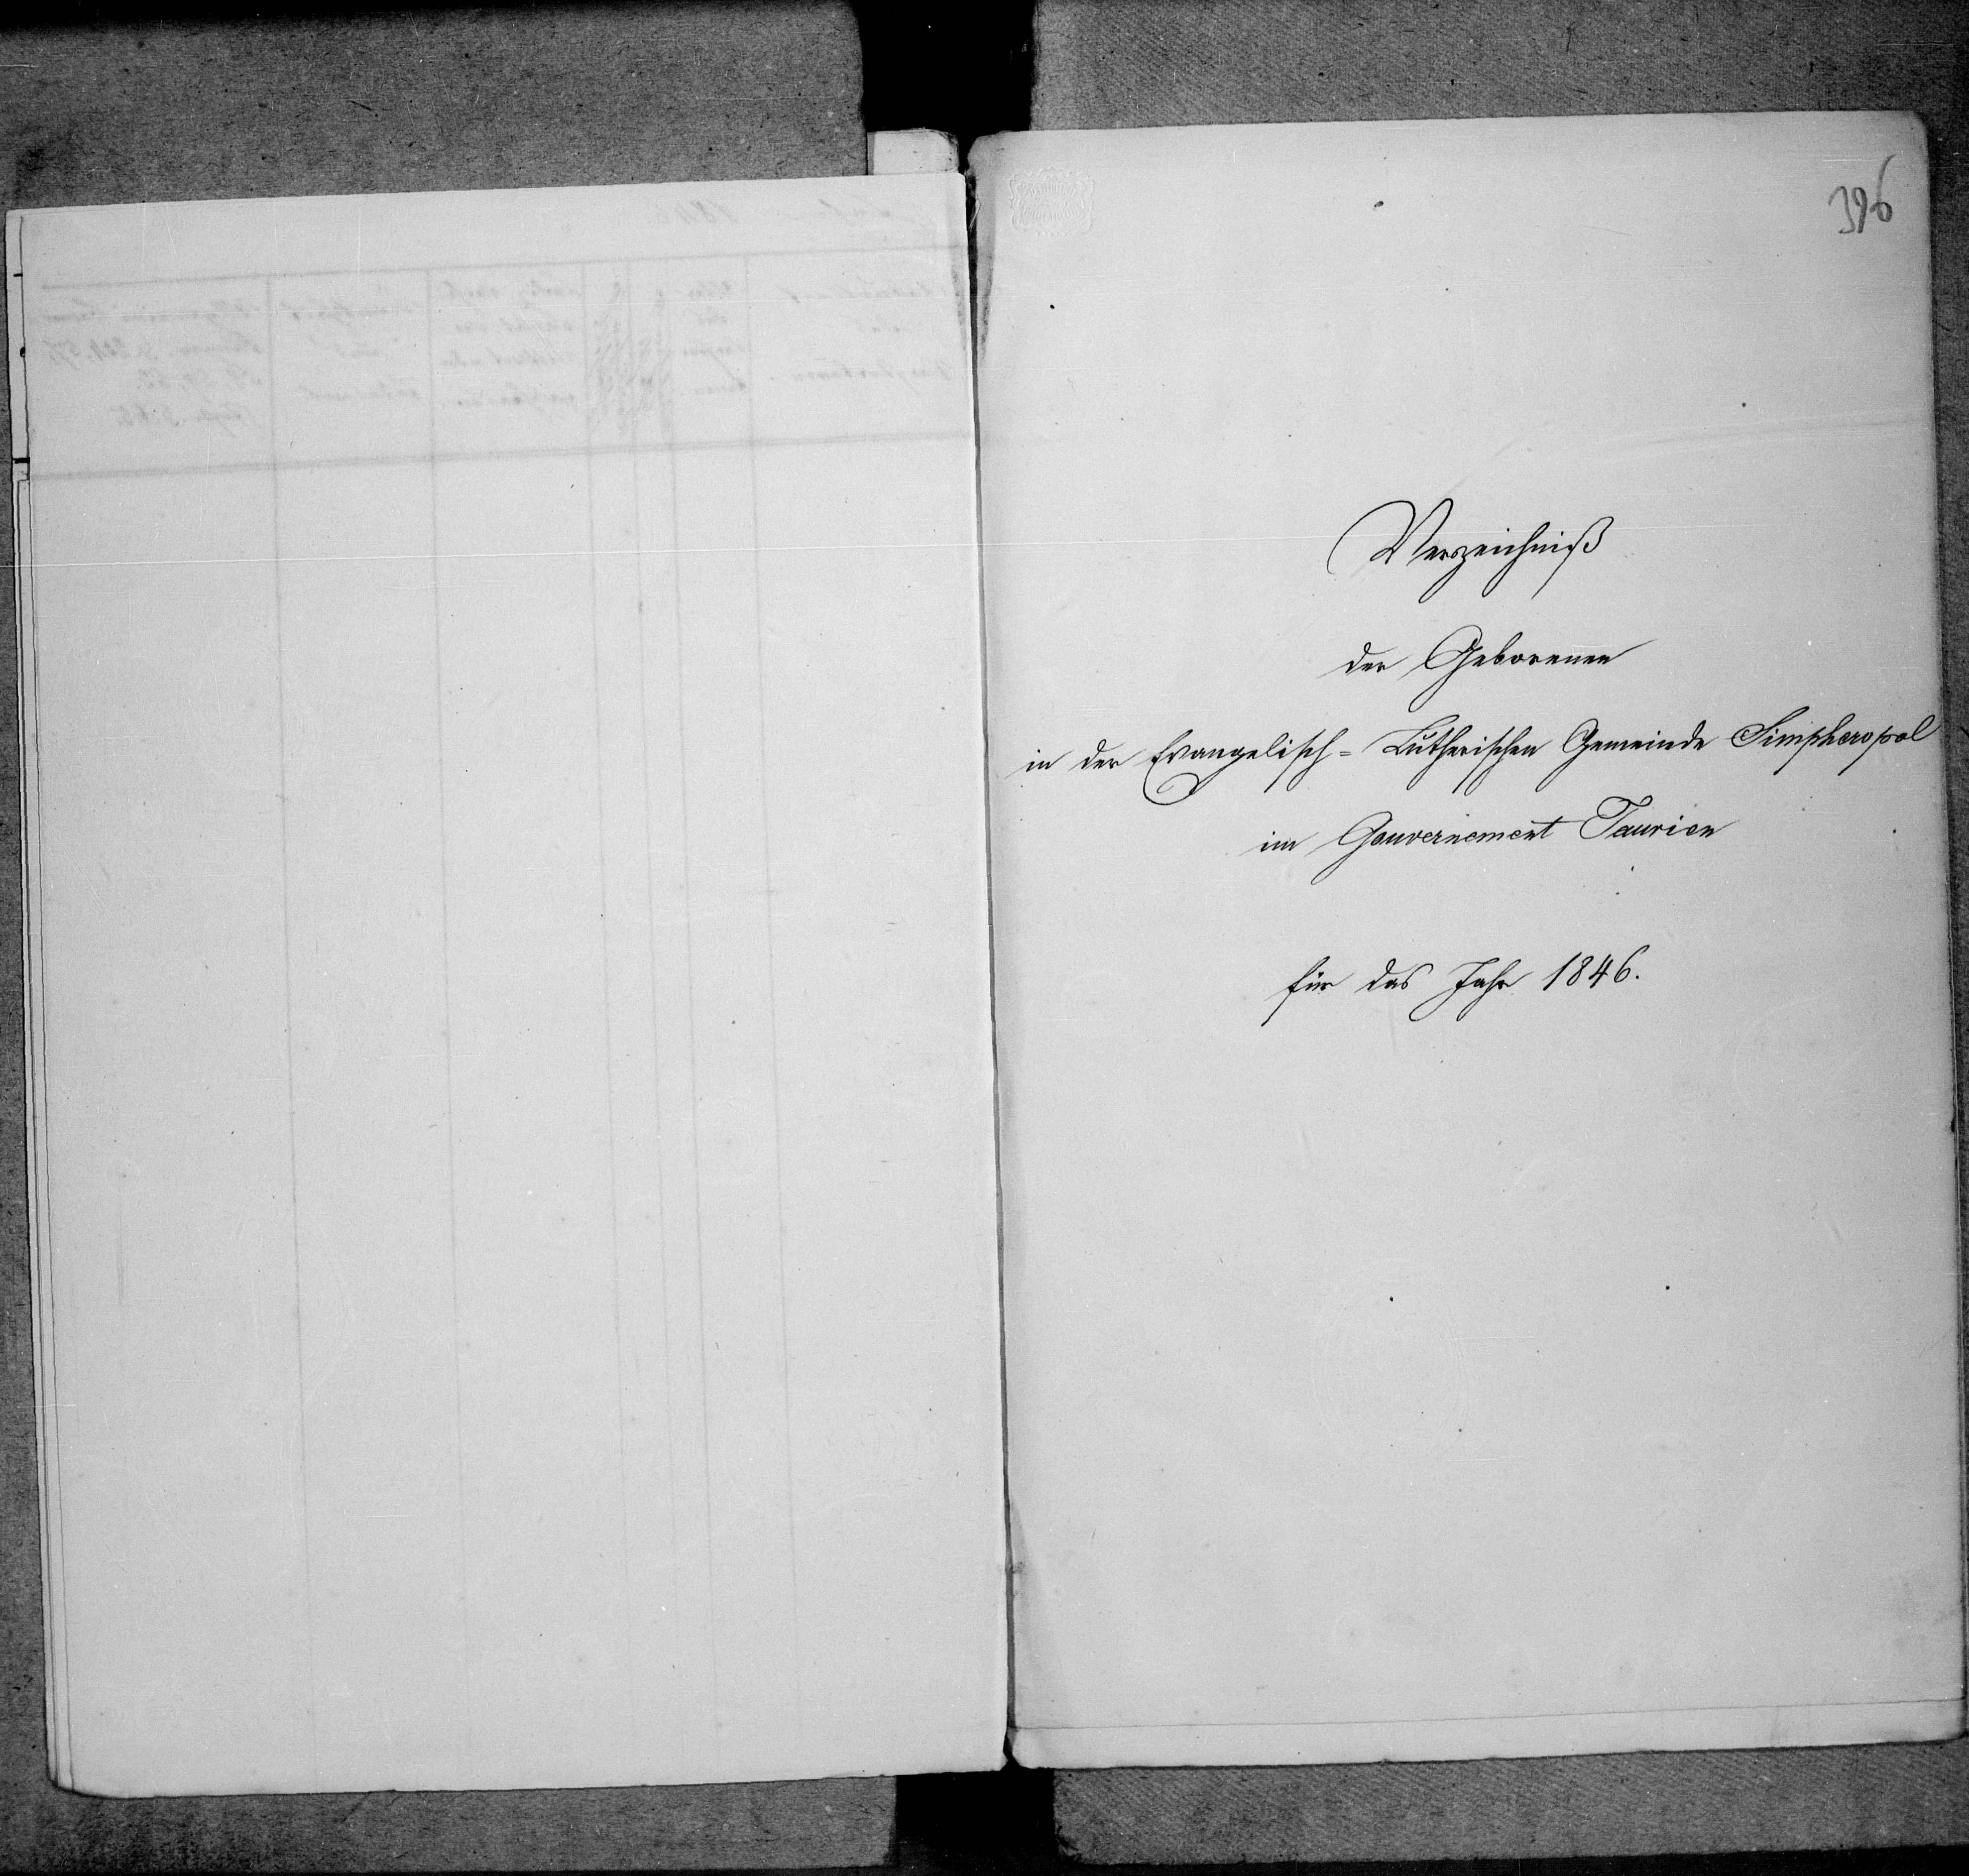 396
Verzeichniß
der Geborenen
in der Evangelisch=Lutherischen Gemeinde Simpheropol
im Gouvernement Taurien
für das Jahr 1846.